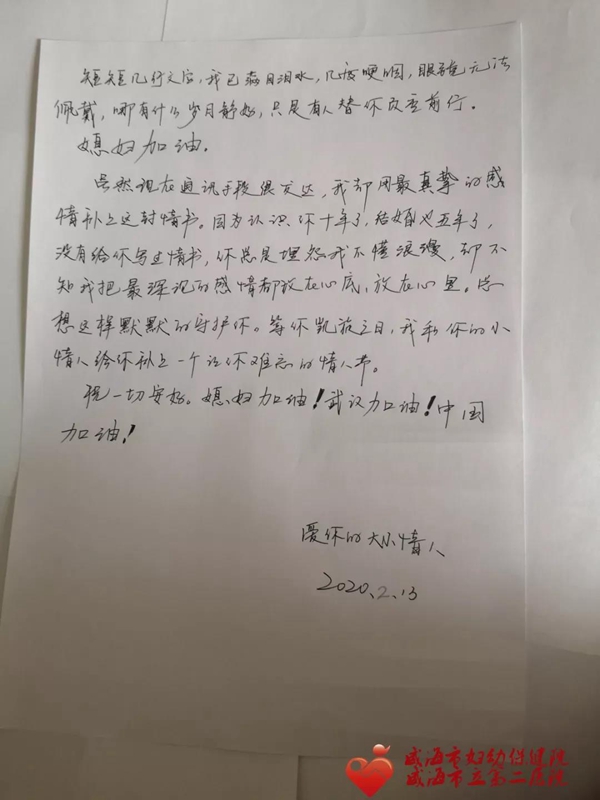 短短几行文字，我已满目泪水，几度哽咽，眼镜无法
佩戴，哪有什么岁月静好，只是有人替你负重前行。
媳妇加油。
虽然现在通讯手段很发达，我却用最真挚的感
情补上这封情书。因为认识你十年了，结婚也五年了，
没有给你写过情书，你总是埋怨我不懂浪漫，却不
知我把最深沉的感情都放在心底，放在心里。总
想这样默默的守护你。等你凯旋之日，我和你的小
情人给你补上一个让你难忘的情人节。
祝一切安好。媳妇加油！武汉加油！中国
加油！
爱你的大小情人
2020.2.13
威海市妇幼保健院
威海市立第二医院